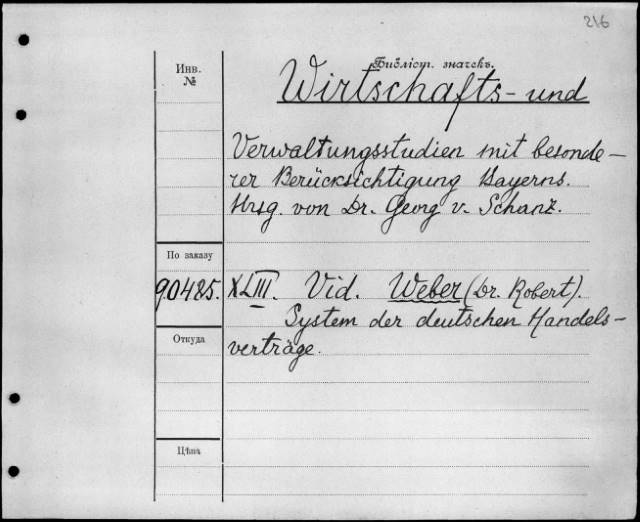 216
Инв.
№
Библіот. значекъ.
Wirtschafts- und
Verwaltungsstudien mit besonde-
rer Berücksichtigung Bayerns.
Hrsg. von Dr. Georg v. Schanz.
По заказу
90485. XLIII. Vid. Weber (Dr. Robert).
System der deutschen Handels-
Откуда
verträge.
Цѣна